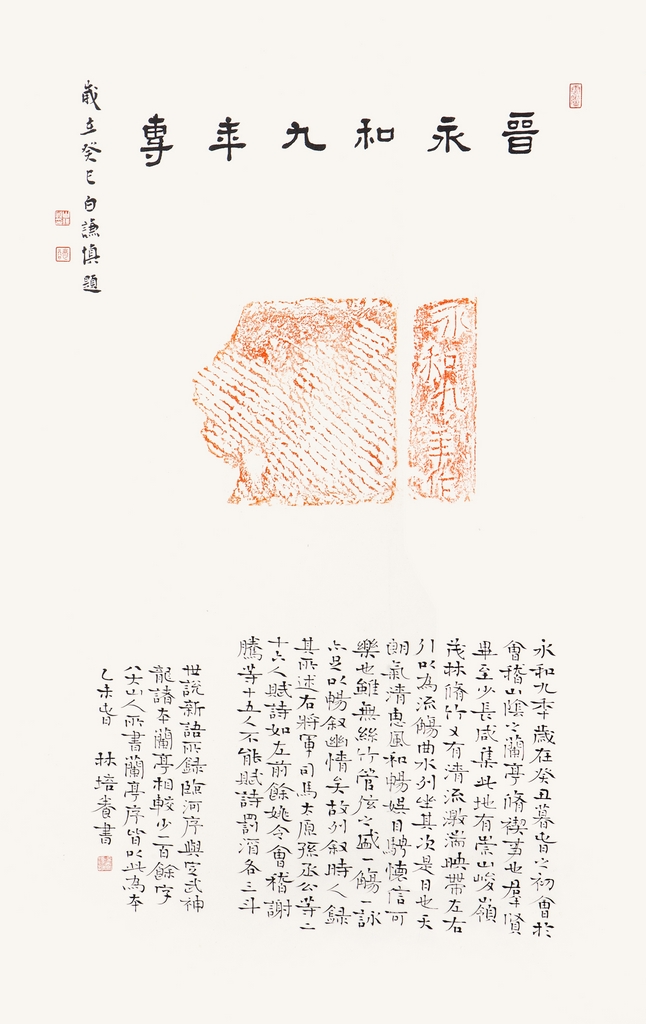 晉永和九年專
歲在癸巳白謙慎題
永和九年作
永和九年歲在癸丑暮春之初會於
會稽山陰之蘭亭脩禊事也羣賢
畢至少長咸集此地有崇山峻嶺
茂林脩竹又有清流激湍映帶左右
引以為流觴曲水列坐其次是日也天
朗氣清惠風和暢娛目騁懷信可
樂也雖無絲竹管弦之盛一觴一詠
亦足以暢敘幽情矣故列敘時人錄
其所述右將軍司馬太原孫丞公等二
十六人賦詩如左前餘姚令會稽謝
騰等十五人不能賦詩罰酒各三斗
世說新語所錄臨河序與定武神
龍諸本蘭亭相較少二百餘字
八大山人所書蘭亭序皆以此為本
乙未春 林培養書